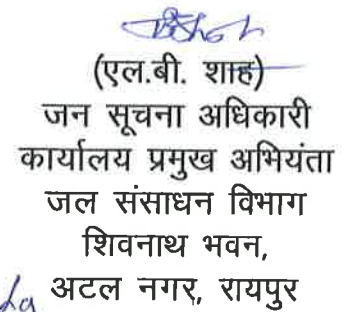 (एल.बी. शाह)
जन सूचना अधिकारी
कार्यालय प्रमुख अभियंता
जल संसाधन विभाग
शिवनाथ भवन,
अटल नगर, रायपुर